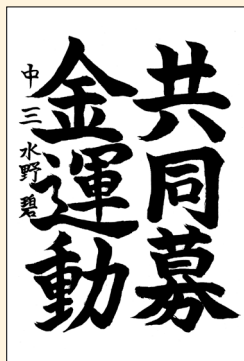 共同募
金運動
中三水野碧